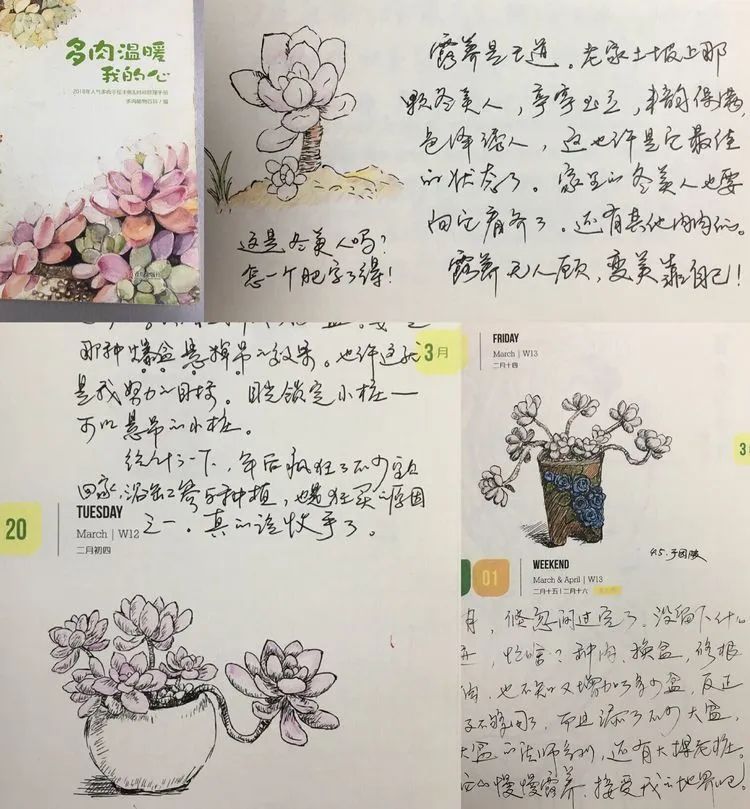 多肉温暖
我的心
2018年人气多肉手绘手帐&时间管理手册
多肉植物百科/编
露养是王道。老家土坡上那
颗冬美人，亭亭玉立，丰韵保满，
色泽诱人，这也许是它最佳
的状态了。家里的冬美人也要
向它看齐了。还有其他肉肉们。
露养无人顾，变美靠自己！
这是冬美人吗？
怎一个肥字了得！
那种爆盆悬掉吊的效果。也许这就
是我努力的目标。目光锁定小桩一
可以悬吊的小桩。
统计一下，年后疯狂了不少
回家，浴缸
种植，也是狂买的原因
之一。真的该收手了。
3月
20
TUESDAY
March | W12
二月初四
FRIDAY
March | W13
二月十四
3
4.5.于园陵
01
WEEKEND
March & April | W13
二月十五 | 二月十六
月，倏忽间过完了。没留下什么
忙啥？种肉、换盆、修根
肉，也不知又增加了多少盆，反正
不够用了，而且添了不少大盆，
大盆的法师系列，还有大棵老桩。
慢慢露养，接受我的地界吧！